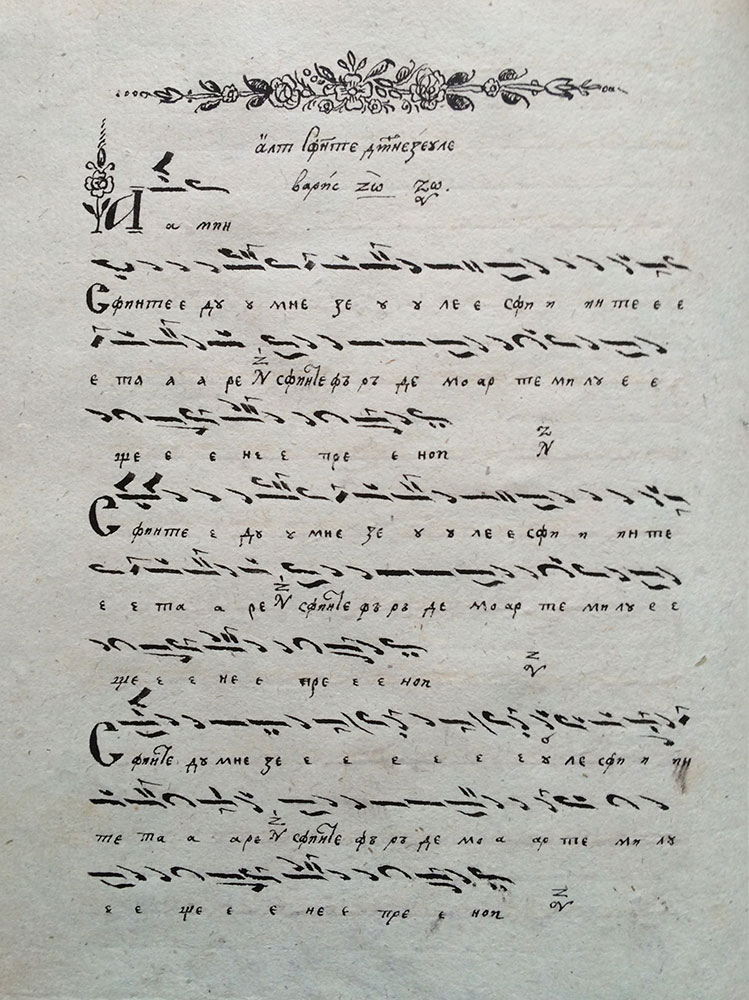 а̓лт Сфи́нте дꙋ́мнеꙁеꙋле
варис zω zω.
А а мин
Сфинте е дꙋ ꙋ мне ꙁе ꙋ ꙋ ле е сфи и ин те е е
е та а а ре сфинте фъ ръ де мо ар те ми лꙋ е е
ще е е не е пре е нои
Сфинте е дꙋ ꙋ мне ꙁе ꙋ ꙋ ле е сфи и ин те
е е та а ре сфинте фъ ръ де мо ар те ми лꙋ е е
ще е е не е пре е е нои
Сфинте дꙋ мне ꙁе е е е е е е ꙋ ле сфи и ин
те та а аре сфинте фъ ръ де мо а ар те ми лꙋ
е е ще е е не е пре е нои